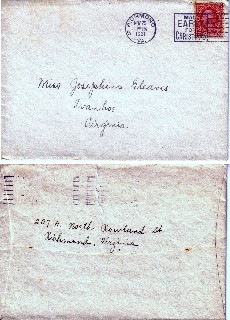 RICHMOND
1931
MAIL
EARLY
FOR
CHRISTMAS
Miss Josephine Cleaves
Ivanhoe
Virginia.
207 A. North Rowland St
Richmond, Virginia